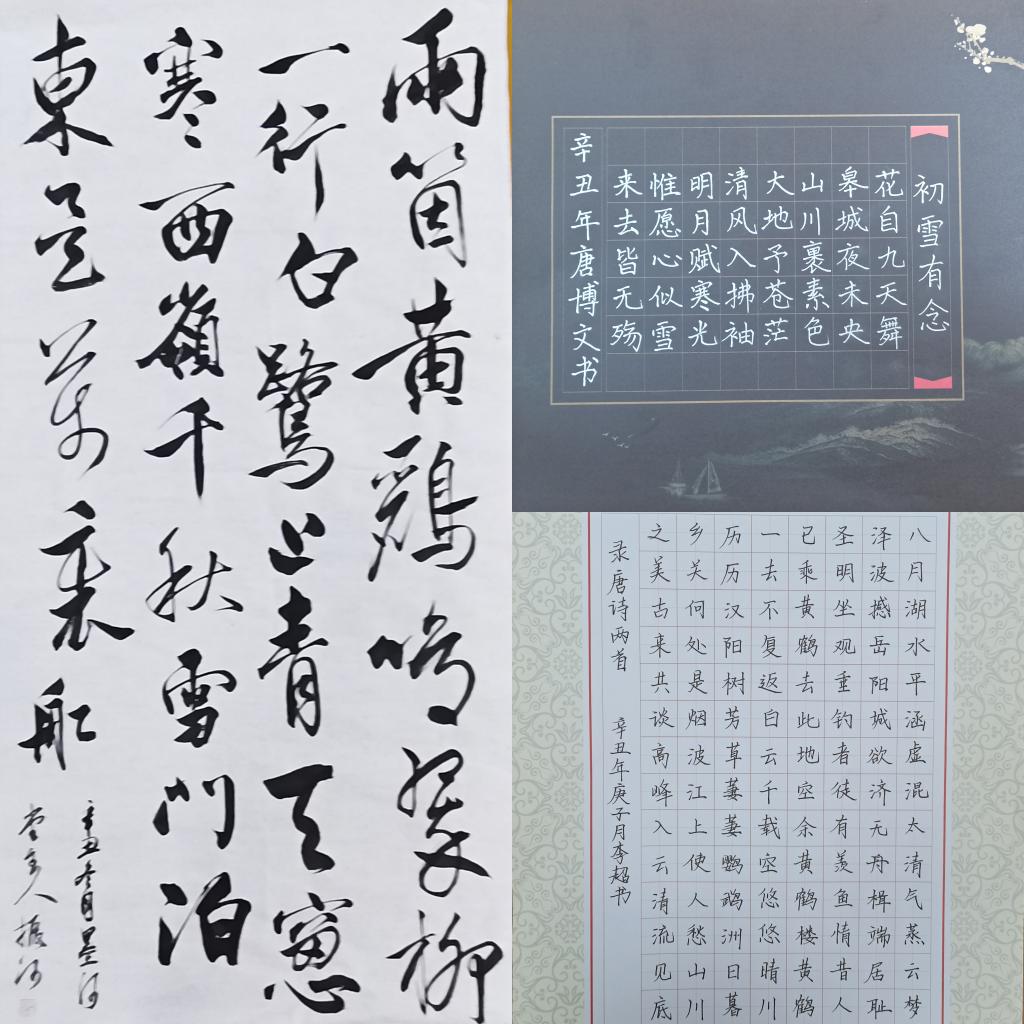 兩箇黃鸝鳴翠柳
一行白鷺上青天窻
寒西嶺千秋雪門泊
東吴萬裏船
辛丑冬月墨河
堂主人振河
初雪有念
花自九天舞
皋城夜未央
山川裹素色
大地予苍茫
清风入拂袖
明月赋寒光
惟愿心似雪
来去皆无殇
辛丑年唐博文书
八月湖水平涵虚混太清气蒸云梦
泽波撼岳阳城欲济无舟楫端居耻
圣明坐观垂钓者徒有羡鱼情昔人
已乘黄鹤去此地空余黄鹤楼黄鹤
一去不复返白云千载空悠悠晴川
历历汉阳树芳草萋萋鹦鹉洲日暮
乡关何处是烟波江上使人愁山川
之美古来共谈高峰入云清流见底
录唐诗两首 辛丑年庚子月李超书